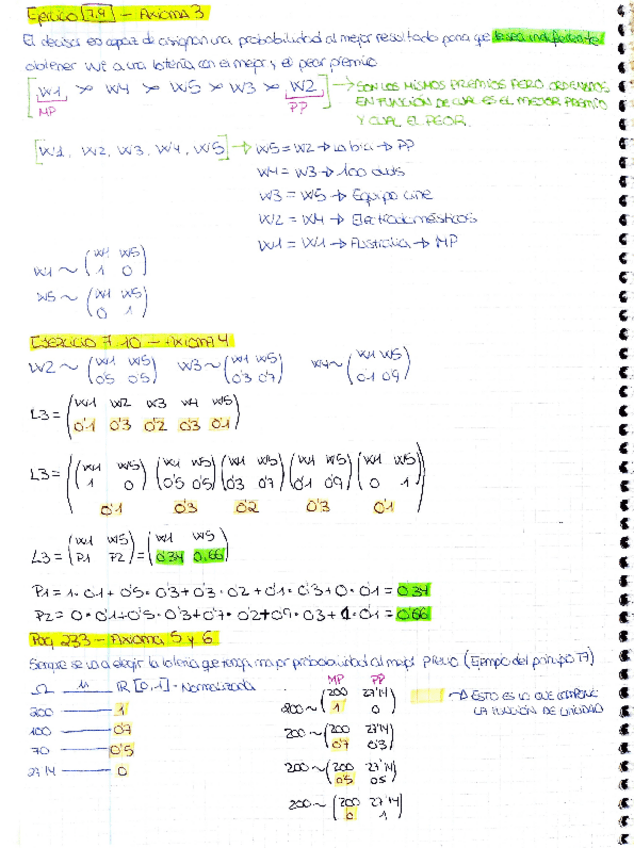 Ejercicio 7.9 - Axioma 3
El decisor es capaz de asignar una probabilidad al mejor resultado para que le sea indiferente
obtener Wi a una lotería con el mejor y el peor premio
[W1 > W4 > W5 > W3 > W2] → SON LOS MISMOS PREMIOS PERO ORDENADOS
MP PP EN FUNCIÓN DE CUAL ES EL MEJOR PREMIO
Y CUAL EL PEOR.
[W1, W2, W3, W4, W5] → W5 = W2 → La bici → PP
W4 = W3 → 100
W3 = W5 → Equipo cine
W2 = W4 → Electrodomésticos
W1 = W1 → Australia → MP
W1 ~ (W1 W5
1 0)
W5 ~ (W1 W5
0 1)
Ejercicio 7.10 - Axioma 4
W2 ~ (W1 W5 W3 ~ (W1 W5 W4 ~ (W1 W5
0'5 0'5) 0'3 0'7) 0'1 0'9)
L3 = (W1 W2 W3 W4 W5
0'1 0'3 0'2 0'3 0'1)
L3 = ((W1 W5) (W1 W5) (W1 W5) (W1 W5) (W1 W5)
1 0 0'5 0'5 0'3 0'7 0'1 0'9 0 1
0'1 0'3 0'2 0'3 0'1)
L3 = (W1 W5) = (W1 W5)
P1 P2 0'34 0.66
P1 = 1 · 0.1 + 0'5 · 0'3 + 0'3 · 0'2 + 0'1 · 0'3 + 0 · 0'1 = 0'34
P2 = 0 · 0'1 + 0'5 · 0'3 + 0'7 · 0'2 + 0'9 · 0'3 + 1 · 0'1 = 0'66
Pag 233 - Axioma 5 y 6
Siempre se va a elegir la lotería que tenga mayor probabilidad al mejor premio (Ejemplo del principio T7)
Ω u R [0,1] - Normalizada MP PP
200 1 200 ~ (200 27'14 → ESTO ES LO QUE COMPONE
1 0) LA FUNCIÓN DE UTILIDAD
100 0'7 200 ~ (200 27'14
0'7 0'3)
70 0'5 200 ~ (200 27'14
0'5 0'5)
27'14 0 200 ~ (200 27'14
0 1)